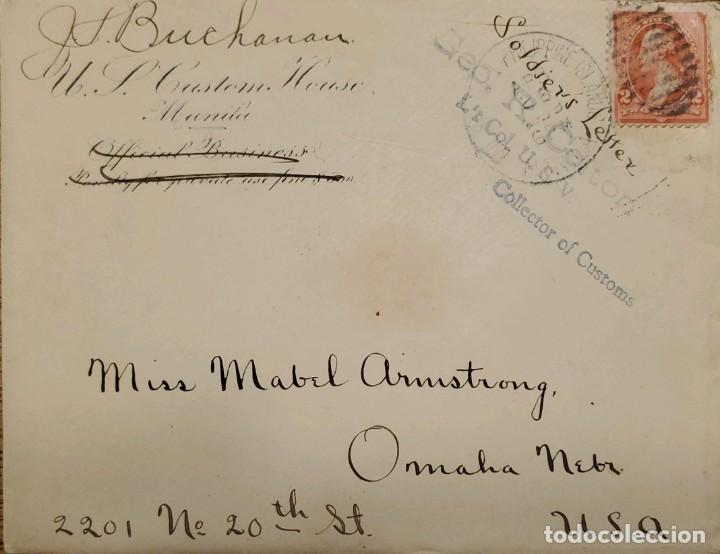 J. S. Buchanan.
U. S. Custom House
Manila
Official Business.
Penalty for private use
Soldier's Letter
PHILIPPINE ISLANDS
Geo. R. Colton
Lt Col. U.S.V.
Collector of Customs
2
Miss Mabel Armstrong,
Omaha Nebr.
2201 No 20th St.
U.S.A.
todocoleccion